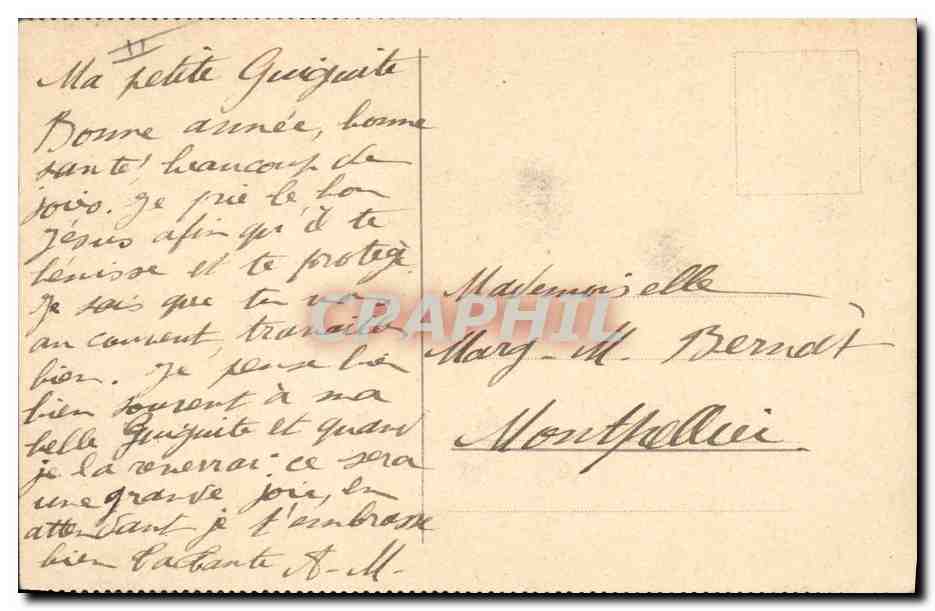 II
Ma petite Guiguite
Bonne année, bonne
santé beaucoup de
joies. Je prie le bon
Jésus afin qu'il te
bénisse et te protège.
Je sais que tu vas
au couvent, travailles
bien. Je pense bien
bien souvent à ma
belle Guiguite et quand
je la reverrai ce sera
une grande joie, en
attendant je t'embrasse
bien ta tante A-M-
Mademoiselle
Marg-M. Berndt
Montpellier
CPAPHIL